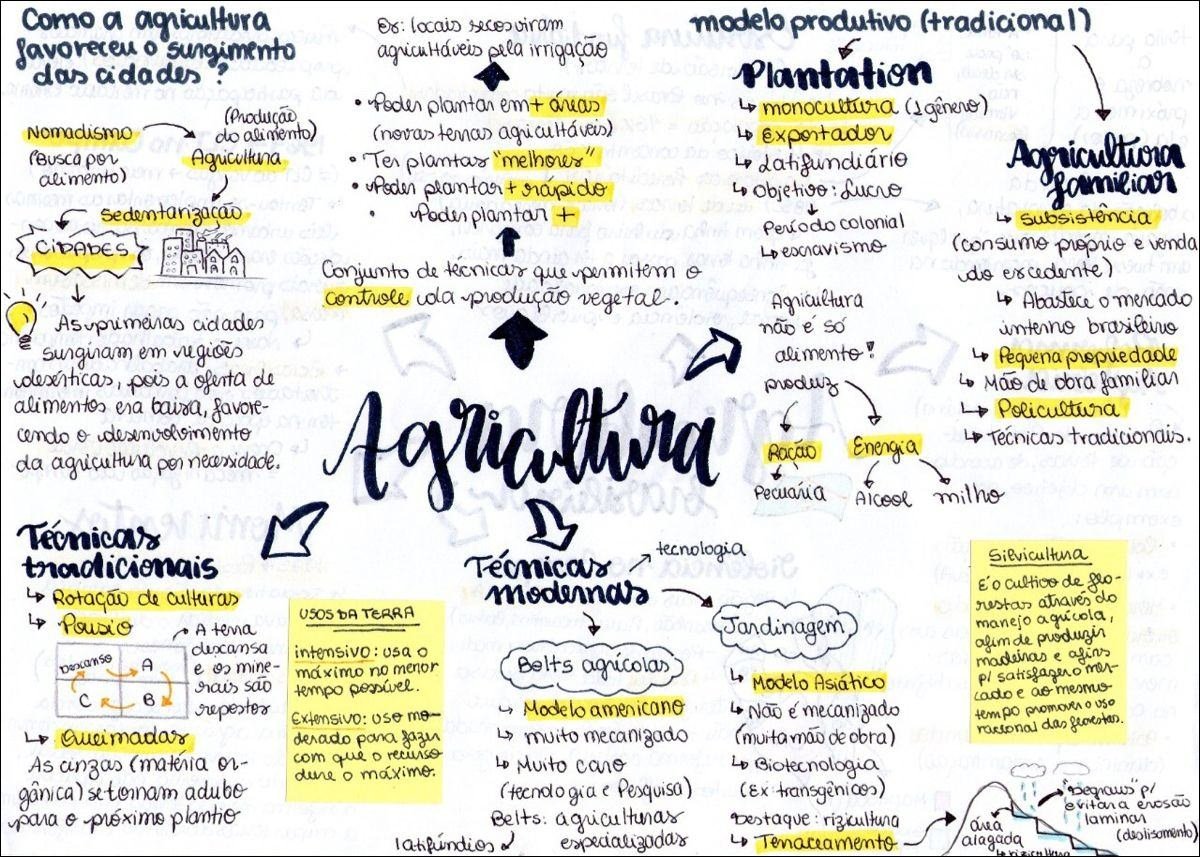 Como a agricultura
favoreceu o surgimento
das cidades?
Nomadismo
(Busca por
alimento)
(Produção
do alimento)
Agricultura
Sedentarização
CIDADES
As primeiras cidades
surgiram em regiões
desérticas, pois a oferta de
alimentos era baixa, favore-
cendo o desenvolvimento
da agricultura por necessidade.
Ex: locais secos viram
agricultáveis pela irrigação
• Poder plantar em + áreas
(novas terras agricultáveis)
• Ter plantas "melhores"
• Poder plantar + rápido
• Poder plantar +
Conjunto de técnicas que permitem o
controle da produção vegetal.
modelo produtivo (tradicional)
Plantation
↳ monocultura (1 gênero)
↳ Exportador
↳ Latifundiário
↳ Objetivo: Lucro
↳ Período colonial
↳ escravismo
Agricultura
familiar
↳ Subsistência
(consumo próprio e venda
do excedente)
↳ Abastece o mercado
interno brasileiro
↳ Pequena propriedade
↳ Mão de obra familiar
↳ Policultura
↳ Técnicas tradicionais.
Agricultura
não é só
alimento!
produz
Ração
Pecuária
Energia
Álcool
milho
Agricultura
Técnicas
tradicionais
↳ Rotação de culturas
↳ Pousio
Descanso
A
C
B
→ A terra
descansa
e os mine-
rais são
repostos
↳ Queimadas
As cinzas (matéria or-
gânica) se tornam adubo
para o próximo plantio
USOS DA TERRA
intensivo: usa o
máximo no menor
tempo possível.
Extensivo: uso mo-
derado para fazer
com que o recurso
dure o máximo.
Técnicas
modernas
→ tecnologia
Belts agrícolas
↳ Modelo americano
↳ muito mecanizado
↳ Muito caro
(tecnologia e Pesquisa)
Belts: agriculturas
especializadas
latifúndios
Jardinagem
↳ Modelo Asiático
↳ Não é mecanizado
(muita mão de obra)
↳ Biotecnologia
(Ex: transgênicos)
Destaque: rizicultura
↳ Terraceamento
Silvicultura
É o cultivo de flo-
restas através do
manejo agrícola,
afim de produzir
madeiras e afins
p/ satisfazer o mer-
cado e ao mesmo
tempo promover o uso
racional das florestas.
Degraus p/
evitar a erosão
laminar
(deslisamento)
área
alagada
↳ rizicultura